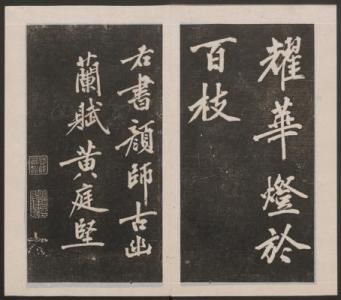 耀華燈於
百枝
右書顏師古幽
蘭賦黃庭堅